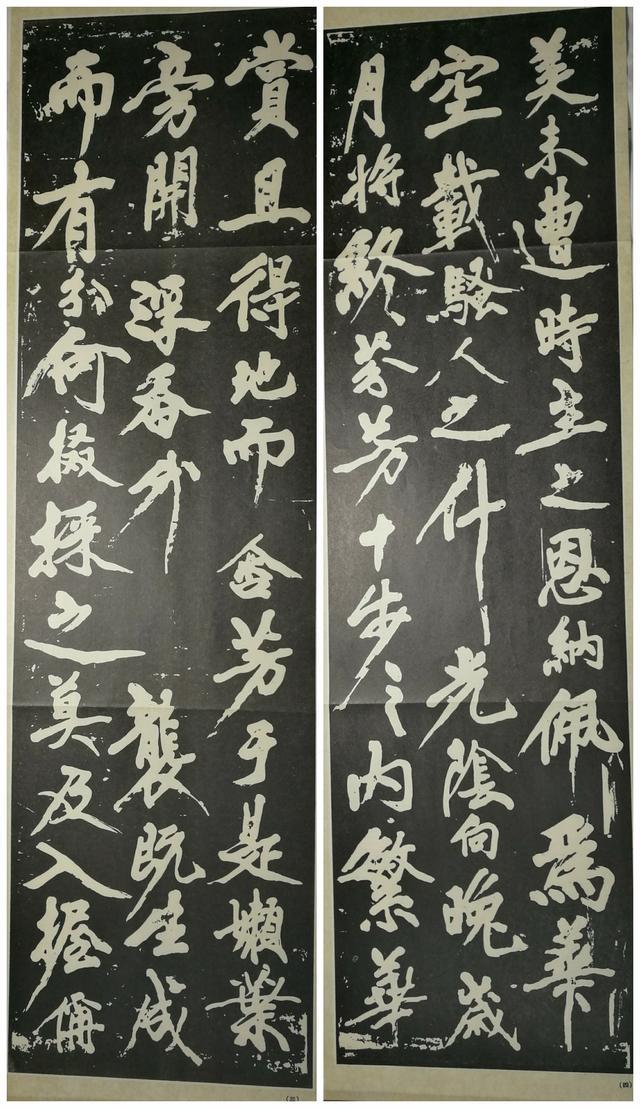 賞且得地而含芳于是嫩葉
旁開浮香外襲既生成
而有分何掇採之莫及入握倘
(三)
美未遭時主之恩納佩爲華
空載騷人之什光陰向晚歲
月將終芬芳十步之內繁華
(四)